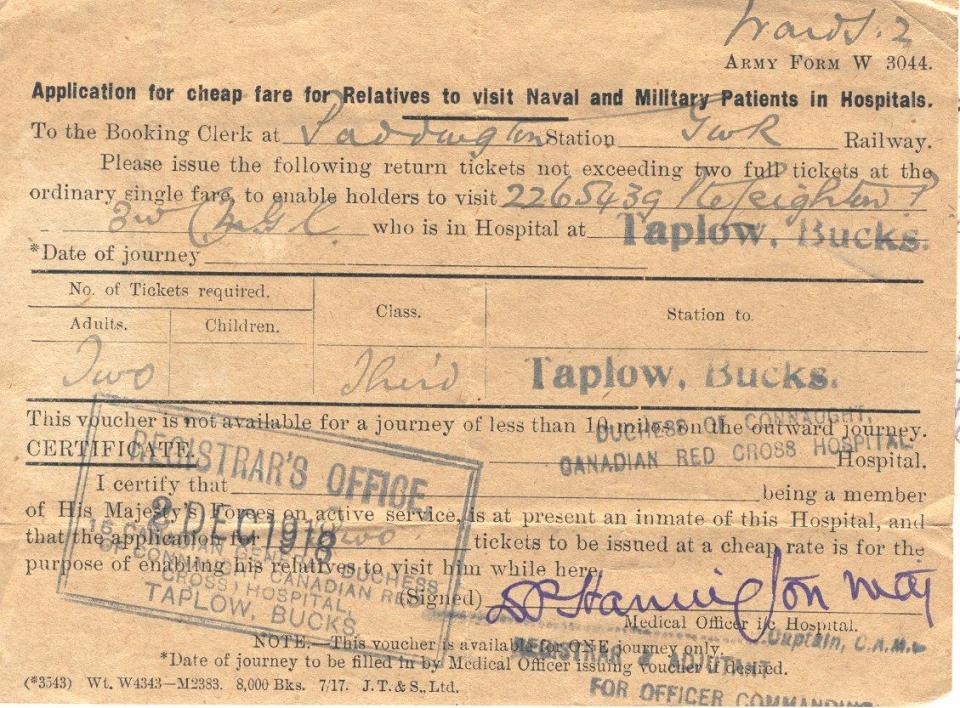 Ward S. 2
ARMY FORM W 3044.
Application for cheap fare for Relatives to visit Naval and Military Patients in Hospitals.
To the Booking Clerk at Paddington Station GWR Railway.
Please issue the following return tickets not exceeding two full tickets at the
ordinary single fare, to enable holders to visit 2265439 Pte
who is in Hospital at Taplow, Bucks.
*Date of journey
No. of Tickets required.
Class.
Station to.
Adults.
Children.
Two
Third
Taplow, Bucks.
This voucher is not available for a journey of less than 10 miles on the outward journey.
DUCHESS OF CONNAUGHT,
CERTIFICATE.
CANADIAN RED CROSS HOSPITAL. Hospital.
I certify that being a member
of His Majesty's Forces on active service, is at present an inmate of this Hospital, and
that the application for Two tickets to be issued at a cheap rate is for the
purpose of enabling his relatives to visit him while here.
REGISTRAR'S OFFICE,
2 DEC 1918
15 CANADIAN GENERAL DUCHESS
OF CONNAUGHT CANADIAN RED
CROSS) HOSPITAL,
TAPLOW, BUCKS
(Signed)
Medical Officer i/c Hospital.
Captain, C.A.M.C.
NOTE.—This voucher is available for ONE journey only.
REGISTRAR & ADJUTANT
*Date of journey to be filled in by Medical Officer issuing voucher if desired.
FOR OFFICER COMMANDING
(*3543) Wt. W4343—M2383. 8,000 Bks. 7/17. J.T. & S., Ltd.